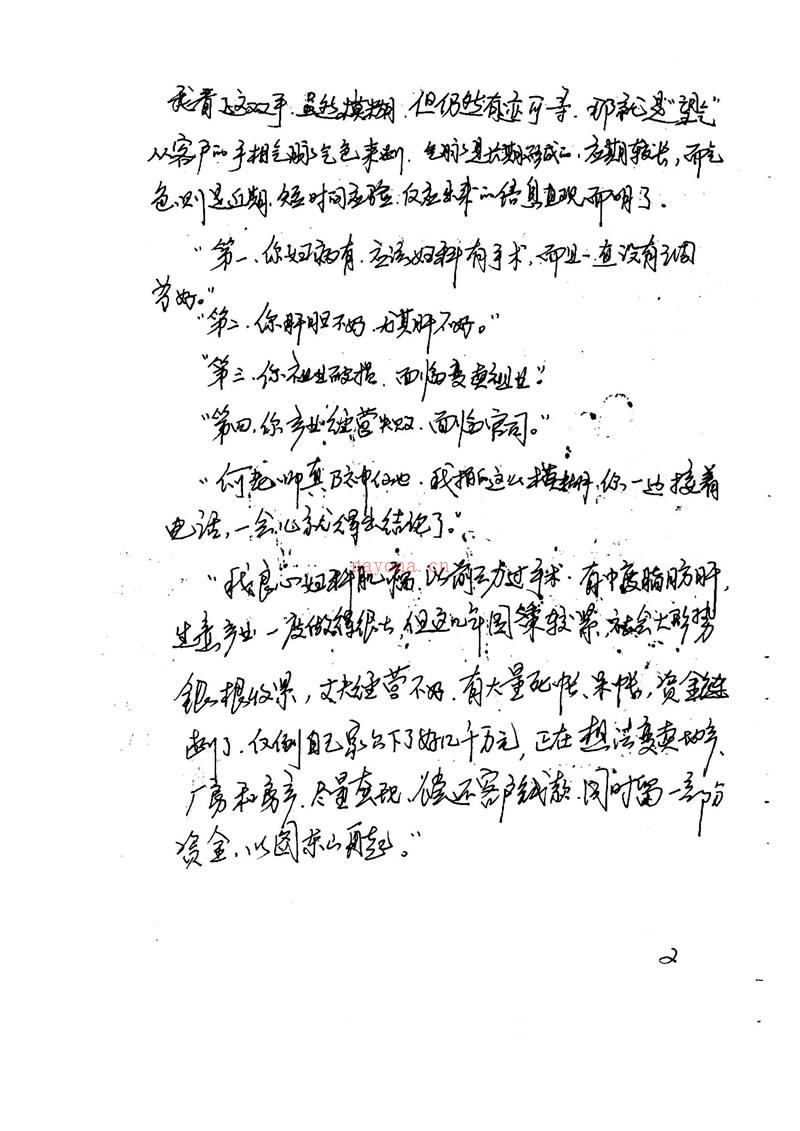 我看了这双手,虽然模糊,但仍然有迹可寻,那就是“望气”
从客户的手相气脉气色来断,气脉是长期形成的,应期较长,而气
色则是近期,短时间应验,反应出来的信息直观而明了.
“第一、你妇病有,应该妇科有手术,而且一直没有调
节好。”
“第二、你肝胆不好,尤其肝不好。”
“第三、你祖业破损,面临变卖祖业”
“第四、你产业经营失败,面临官司。”
“何老师真乃神仙也,我拍的这么模糊,你一边接着
电话,一会儿就得出结论了。”
nayona.cn
“我 妇科肌瘤,以前动过手术,有中度脂肪肝,
产业一度做得很大,但这几年国策较紧,社会大形势
银根收紧,丈夫经营不好,有大量死帐、呆帐,资金链
断了,仅倒自己家欠下了好几千万元,正在想法变卖地产、
厂房和房产,尽量变现,偿还客户钱款,同时留一部份
资金,以图东山再起。”
2